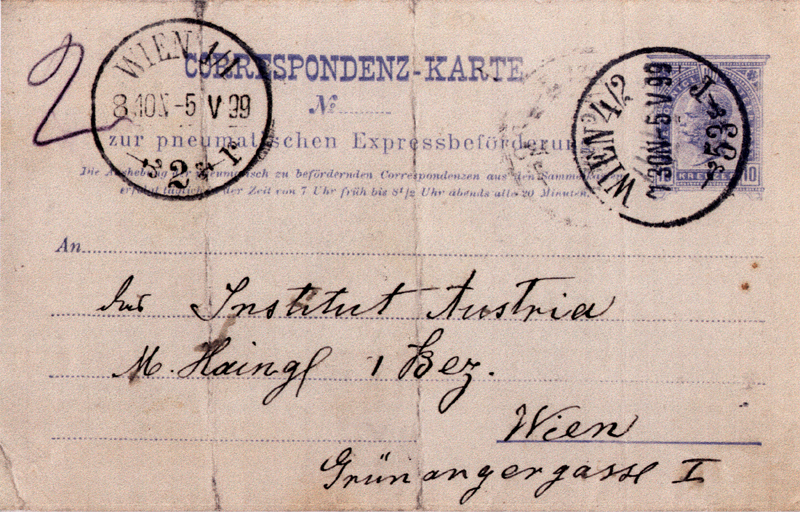 2
WIEN 1/1
8.40N-5 V 99
* 2 * T
CORRESPONDENZ-KARTE
№
zur pneumatischen Expressbeförderung
Die Aushebung der pneumatisch zu befördernden Correspondenzen aus den Sammel
erfolgt täglich in der Zeit von 7 Uhr früh bis 8½ Uhr abends alle 20 Minuten.
WIEN 4/2
7.30N-5 V 99
KREUZER 10
An
das Institut Austria
M. Haingl 1 Bez.
Wien
Grünangergasse I